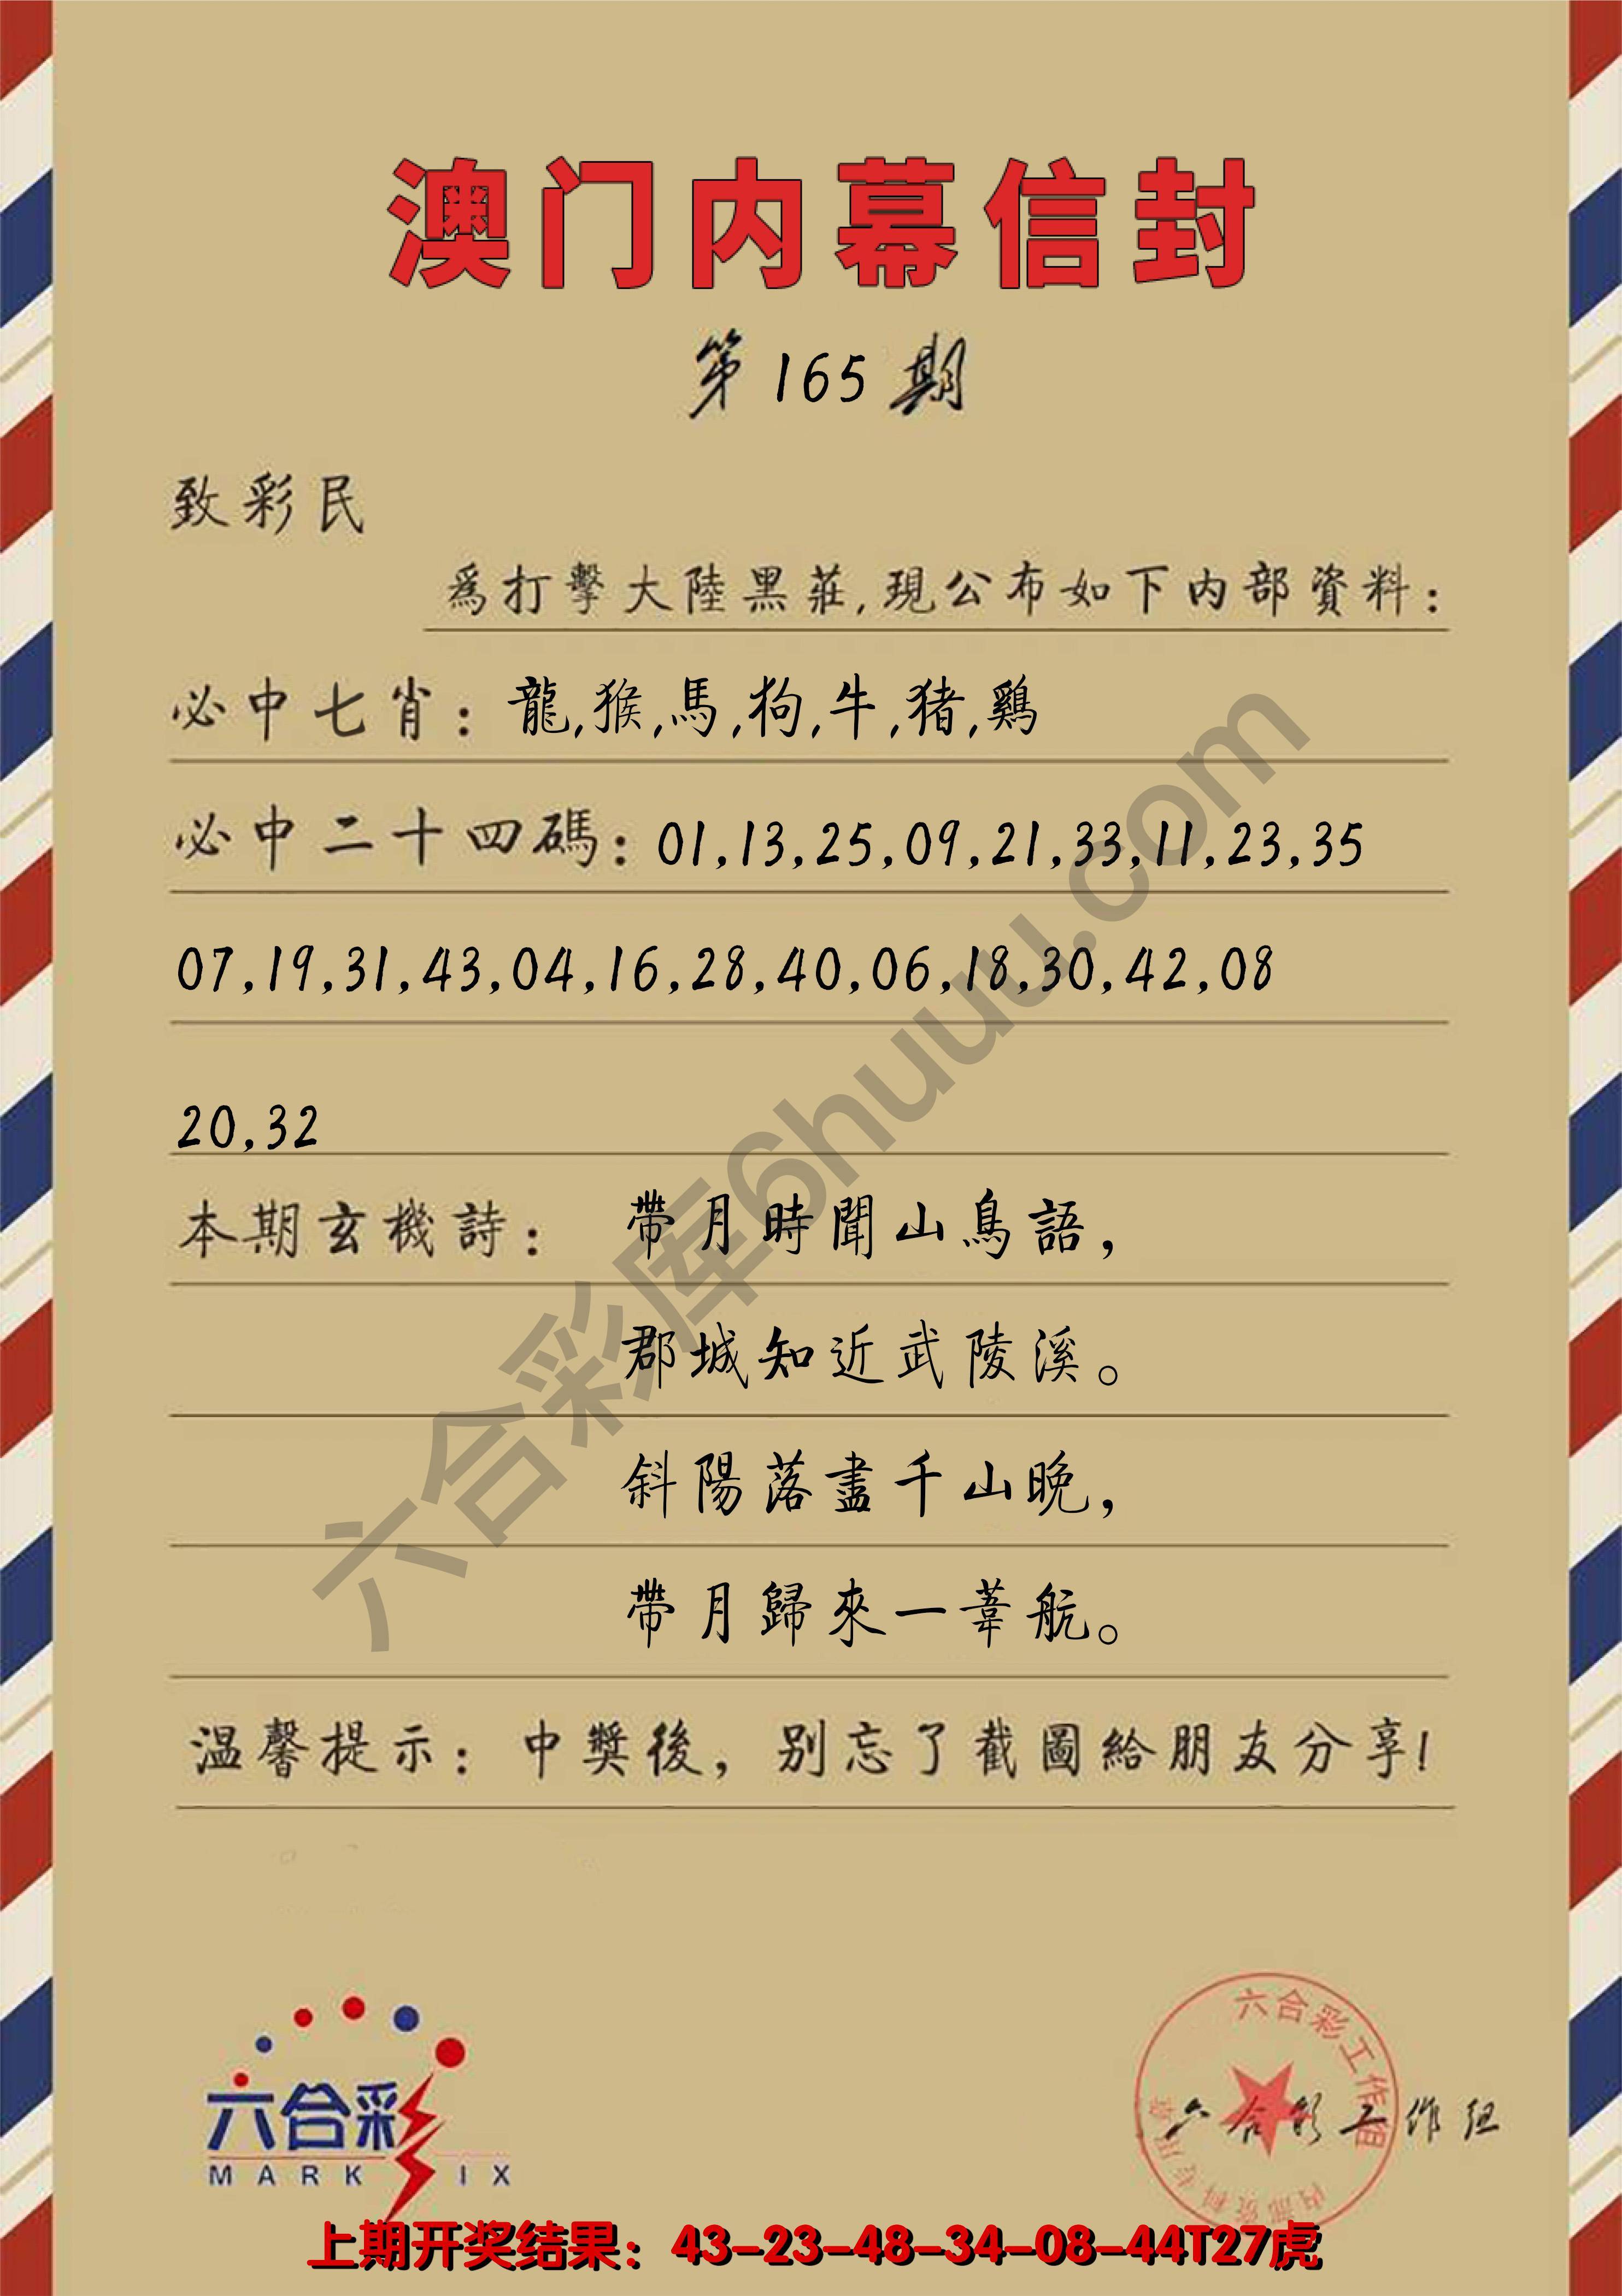 澳门内幕信封
第165期
致彩民
爲打擊大陸黑莊,現公布如下内部資料:
必中七肖: 龍,猴,馬,狗,牛,猪,鷄
必中二十四碼: 01,13,25,09,21,33,11,23,35
07,19,31,43,04,16,28,40,06,18,30,42,08
20,32
本期玄機詩: 帶月時聞山鳥語,
郡城知近武陵溪。
斜陽落盡千山晚,
帶月歸來一葦航。
温馨提示: 中獎後, 别忘了截圖給朋友分享!
六合彩库6huuu.com
六合彩
MARK IX
六合彩工作组
内部资料专用章
六合彩工作组
上期开奖结果: 43-23-48-34-08-44T27虎